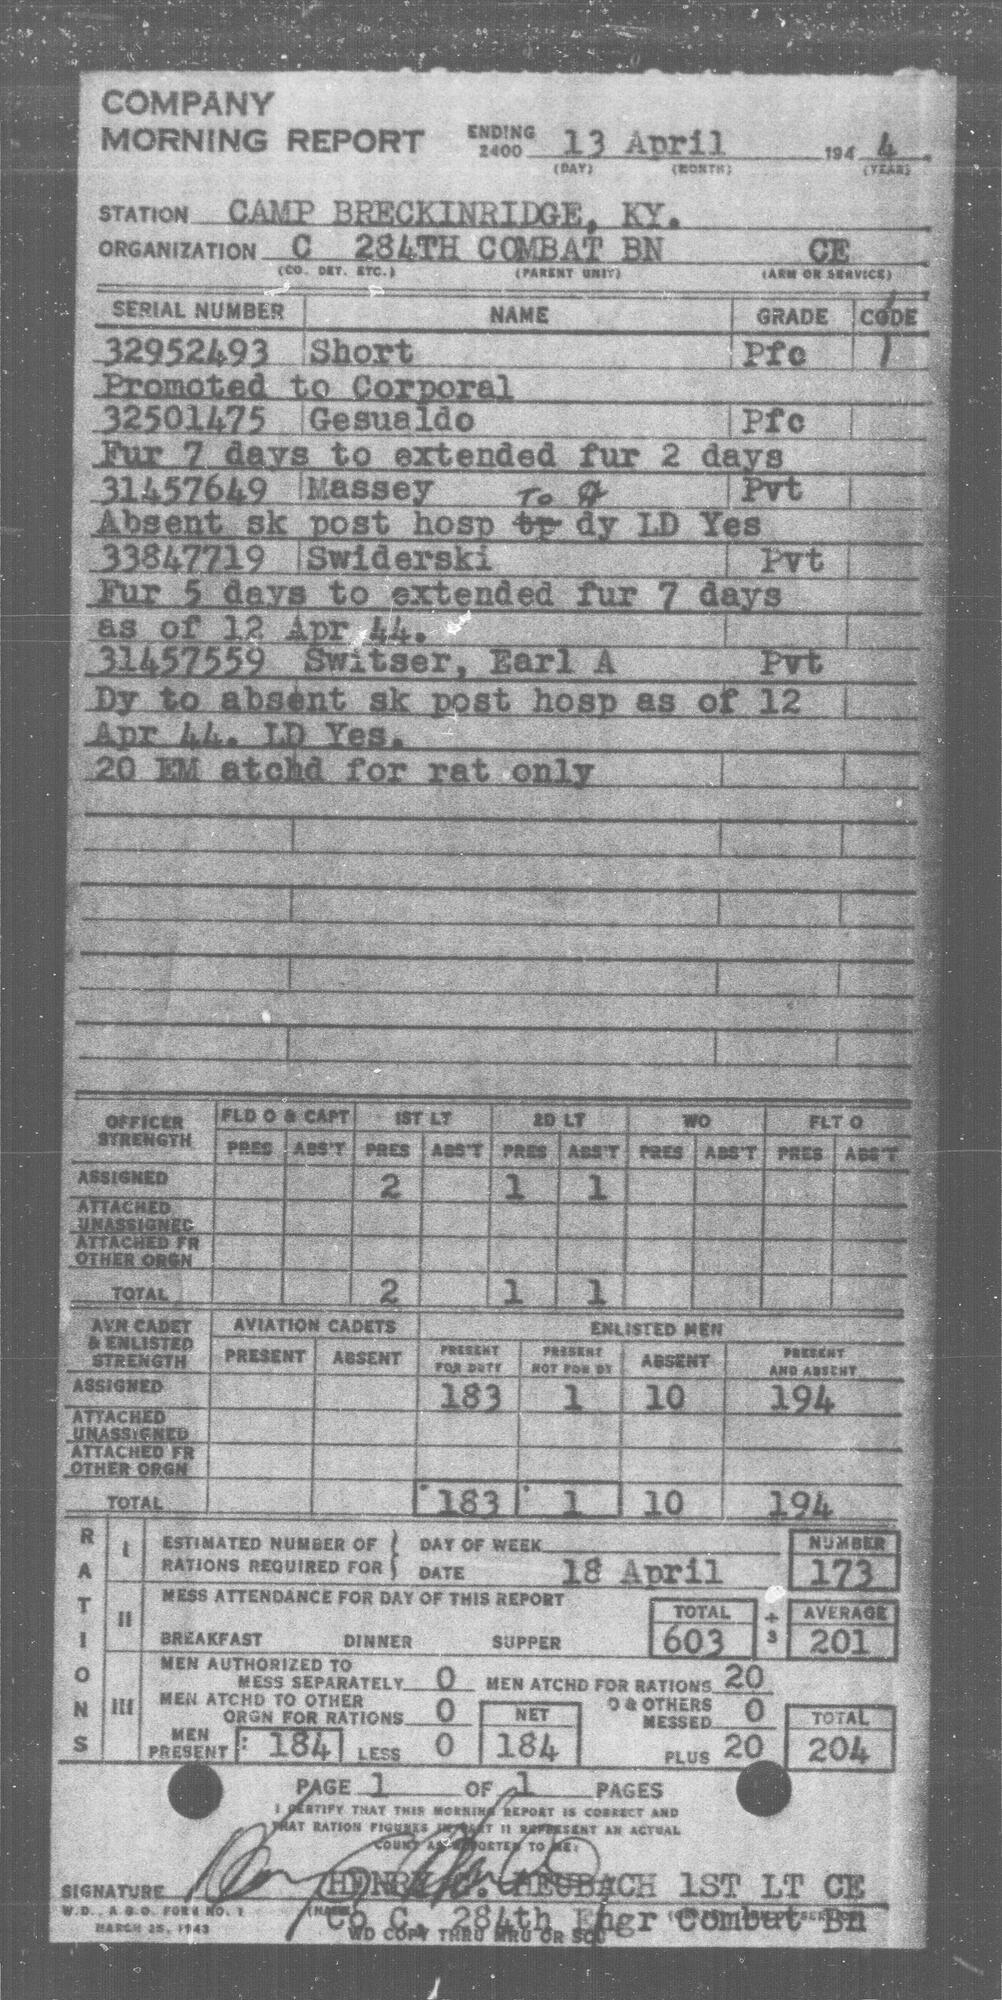 COMPANY
MORNING REPORT ENDING 2400 13 April 194 4
(DAY) (MONTH) (YEAR)
STATION CAMP BRECKINRIDGE, KY.
ORGANIZATION C 284TH COMBAT BN CE
(CO. DET. ETC.) (PARENT UNIT) (ARM OR SERVICE)
SERIAL NUMBER NAME GRADE CODE
32952493 Short Pfc
Promoted to Corporal
32501475 Gesualdo Pfc
Fur 7 days to extended fur 2 days
31457649 Massey To Pvt
Absent sk post hosp tp dy LD Yes
33847719 Swiderski Pvt
Fur 5 days to extended fur 7 days
as of 12 Apr 44.
31457559 Switser, Earl A Pvt
Dy to absent sk post hosp as of 12
Apr 44. LD Yes.
20 EM atchd for rat only
OFFICER STRENGTH FLD O & CAPT 1ST LT 2D LT WO FLT O
PRES ABS'T PRES ABS'T PRES ABS'T PRES ABS'T PRES ABS'T
ASSIGNED 2 1 1
ATTACHED UNASSIGNED
ATTACHED FR OTHER ORGN
TOTAL 2 1 1
AVN CADET & ENLISTED STRENGTH AVIATION CADETS ENLISTED MEN
PRESENT ABSENT PRESENT FOR DUTY PRESENT NOT FOR DY ABSENT PRESENT AND ABSENT
ASSIGNED 183 1 10 194
ATTACHED UNASSIGNED
ATTACHED FR OTHER ORGN
TOTAL 183 1 10 194
RATIONS
I ESTIMATED NUMBER OF DAY OF WEEK NUMBER
RATIONS REQUIRED FOR DATE 18 April 173
II MESS ATTENDANCE FOR DAY OF THIS REPORT TOTAL ÷ 3 AVERAGE
BREAKFAST DINNER SUPPER 603 201
III MEN AUTHORIZED TO
MESS SEPARATELY 0 MEN ATCHD FOR RATIONS 20
MEN ATCHD TO OTHER
ORGN FOR RATIONS 0 NET O & OTHERS MESSED 0 TOTAL
MEN PRESENT 184 LESS 0 184 PLUS 20 204
PAGE 1 OF 1 PAGES
I CERTIFY THAT THIS MORNING REPORT IS CORRECT AND
THAT RATION FIGURES IN PART II REPRESENT AN ACTUAL
COUNT AS REPORTED TO ME:
SIGNATURE HENRY HEUBACH 1ST LT CE
W.D., A.G.O. FORM NO. 1
MARCH 25, 1943
Co C, 284th Engr Combat Bn
WD COPY THRU MRU OR SCU